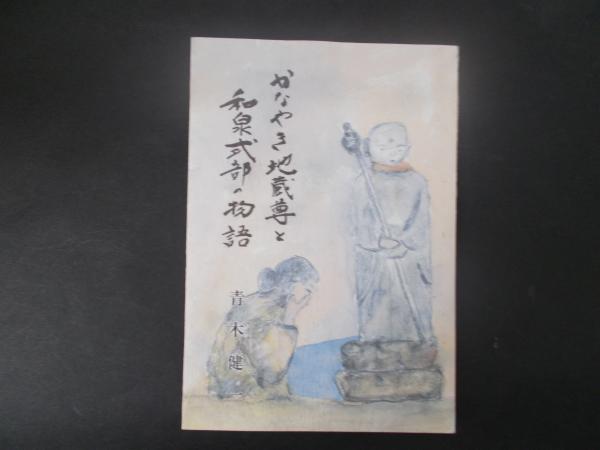 かなやき地蔵尊と
和泉式部の物語
青木健一